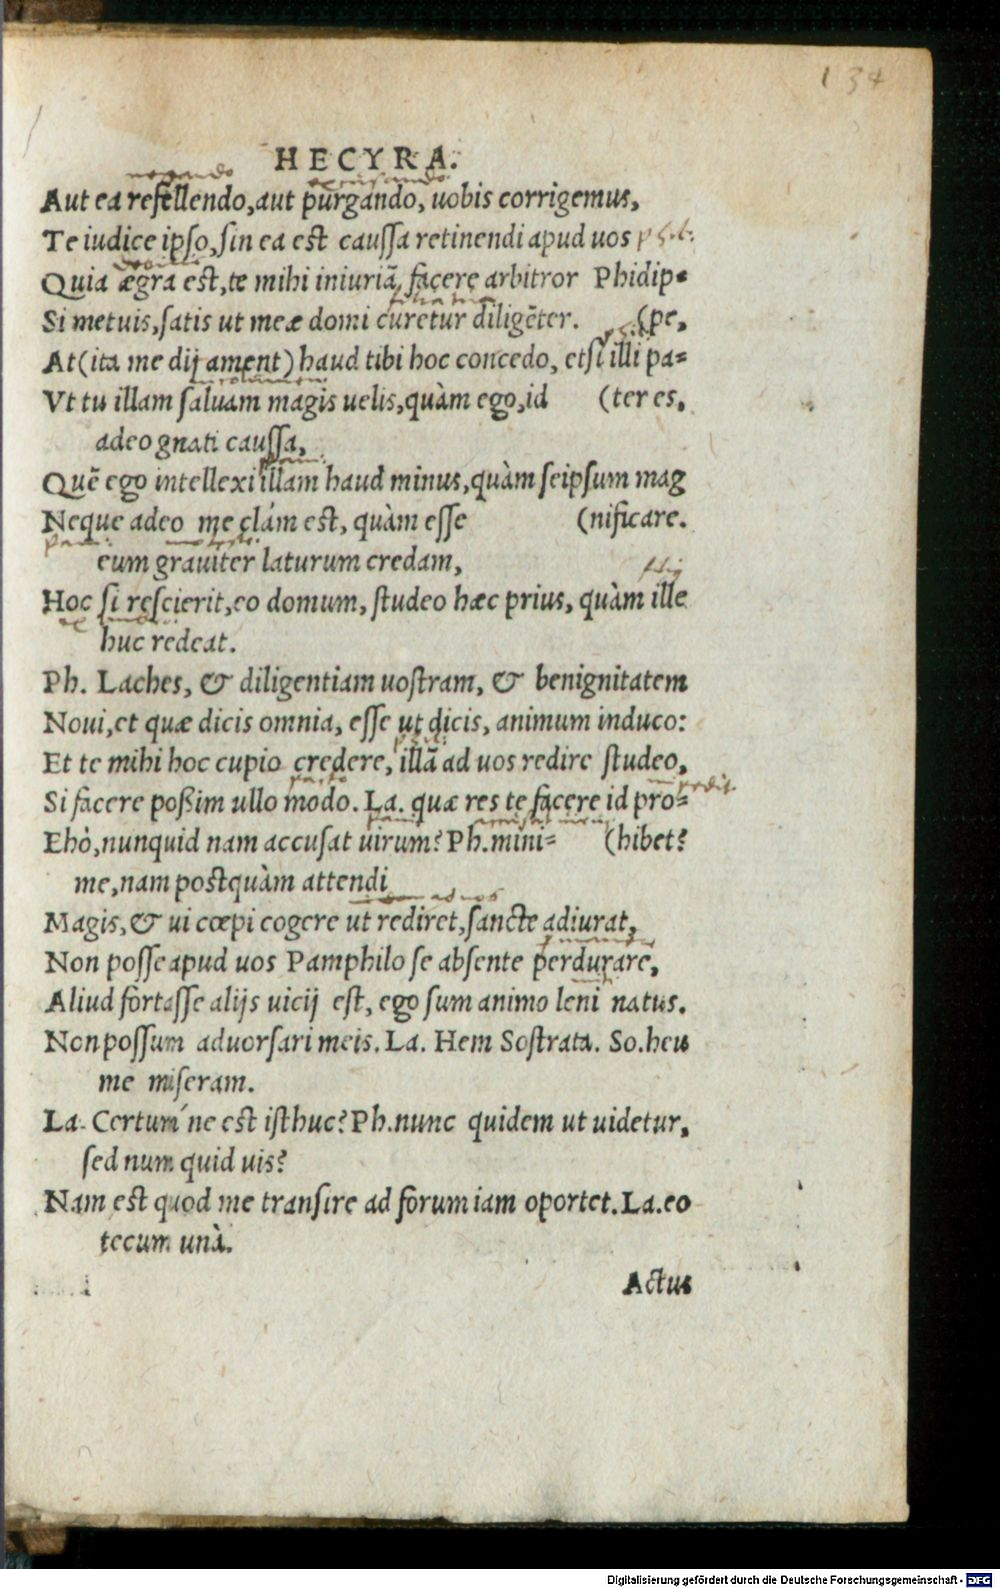 134
HECYRA.
negando excusando
Aut ea refellendo, aut purgando, uobis corrigemus,
Te iudice ipso, sin ea est caussa retinendi apud uos
Quia ægra est, te mihi iniuriã facere arbitror Phidip-
filia mea
Si metuis, satis ut meæ domi curetur diligẽter. (pe,
At (ita me dij ament) haud tibi hoc concedo, etsi illi pa-
Vt tu illam saluam magis uelis, quàm ego, id (ter es,
adeo gnati caussa,
Quẽ ego intellexi illam haud minus, quàm seipsum mag
Neque adeo me clám est, quàm esse (nificare.
eum grauiter laturum credam,
Hoc si rescierit, eo domum, studeo hæc prius, quàm ille
huc redeat.
Ph. Laches, & diligentiam uostram, & benignitatem
Noui, et quæ dicis omnia, esse ut dicis, animum induco:
Et te mihi hoc cupio credere, illã ad uos redire studeo,
Si facere poßim ullo modo. La. quæ res te facere id pro-
Ehò, nunquid nam accusat uirum? Ph. mini- (hibet?
me, nam postquàm attendi
ad uos
Magis, & ui cœpi cogere ut rediret, sancte adiurat,
Non posse apud uos Pamphilo se absente perdurare,
Aliud fortasse alijs uicij est, ego sum animo leni natus.
Non possum aduorsari meis. La. Hem Sostrata. So. heu
me miseram.
La. Certum´ne est isthuc? Ph. nunc quidem ut uidetur,
sed num quid uis?
Nam est quod me transire ad forum iam oportet. La. eo
tecum unà.
Actus
Digitalisierung gefördert durch die Deutsche Forschungsgemeinschaft - DFG